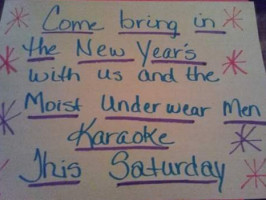 Come bring in
the New Year's
with us and the
Moist Underwear Men
Karaoke
This Saturday